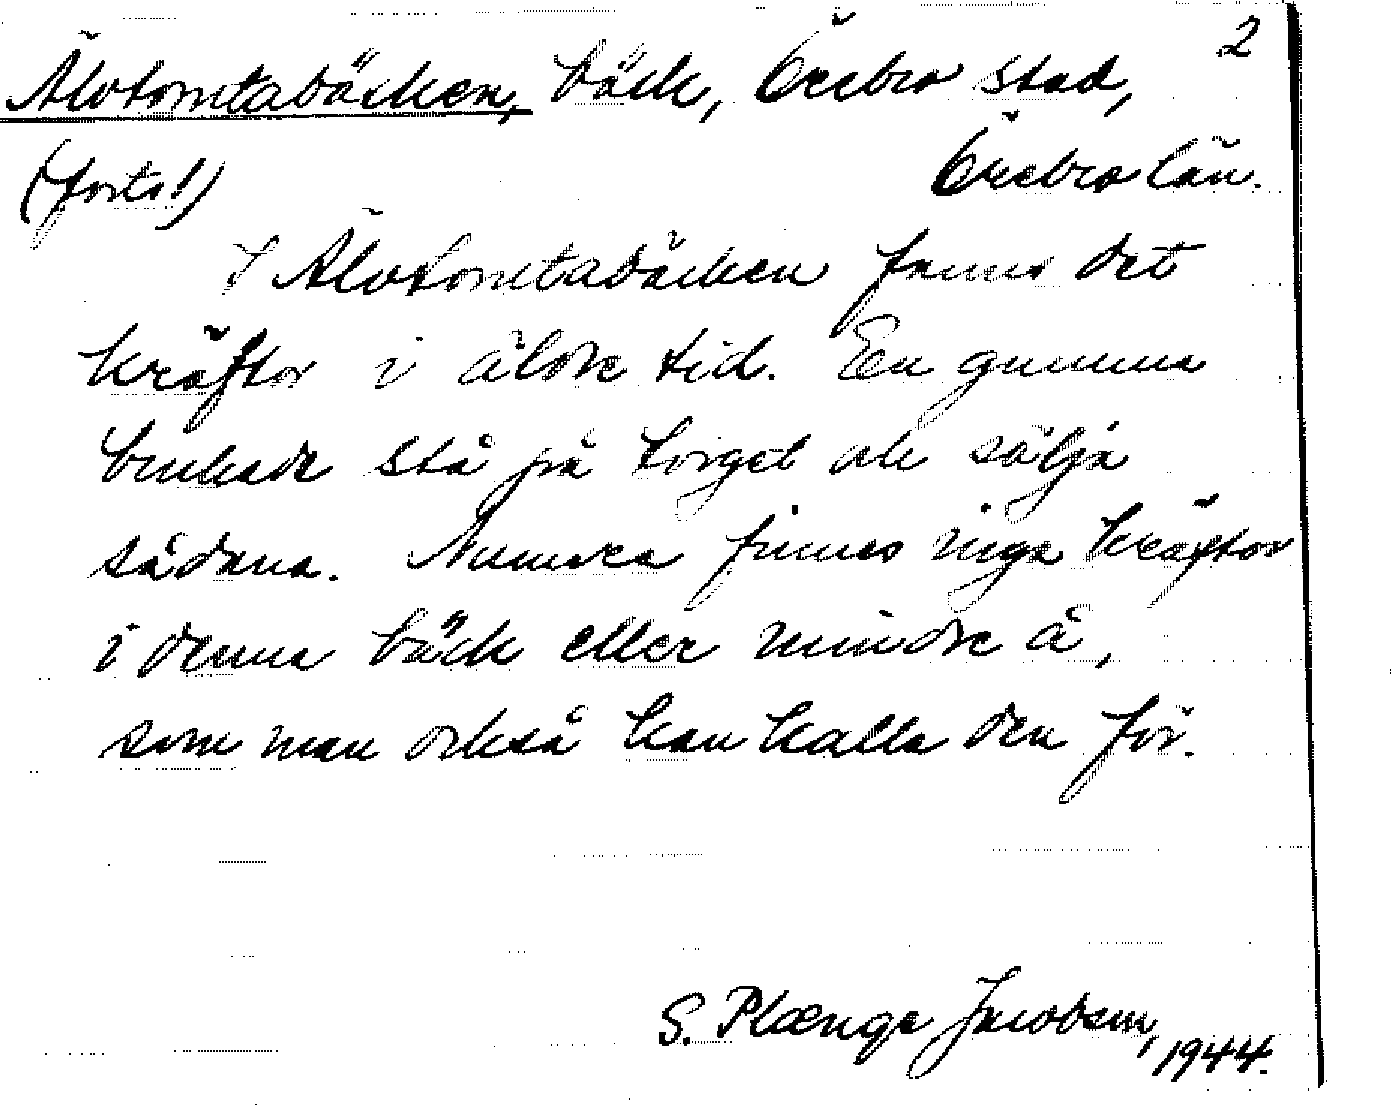 2
Älvtomtabäcken, bäck, Örebro stad,
(forts!) Örebro län.
I Älvtomtabäcken fanns det
kräftor i äldre tid. En gumma
brukade stå på torget och sälja
sådana. Numera finnes inga kräftor
i denna bäck eller mindre å,
som man också kan kalla den för.
S. Plænge Jacobson,
1944.